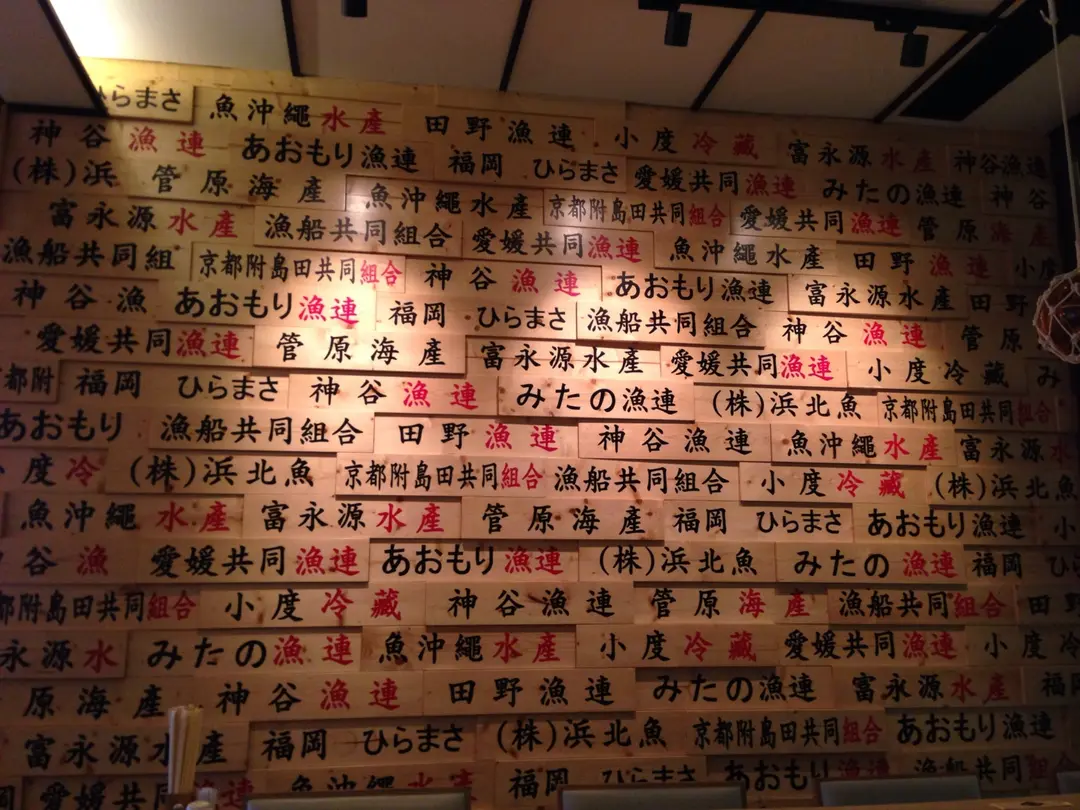 ひらまさ 魚沖繩水産 田野漁連 小度冷藏 富永源水産 神谷漁連
神谷漁連 あおもり漁連 福岡 ひらまさ 愛媛共同漁連 みたの漁連 神谷
(株)浜 管原海産 魚沖繩水産 京都附島田共同組合 愛媛共同漁連 管原海産
富永源水産 漁船共同組合 愛媛共同漁連 魚沖繩水産 田野漁連 小度
漁船共同組 京都附島田共同組合 神谷漁連 あおもり漁連 富永源水産 田野
神谷漁 あおもり漁連 福岡 ひらまさ 漁船共同組合 神谷漁連 管原
愛媛共同漁連 管原海産 富永源水産 愛媛共同漁連 小度冷藏 み
都附 福岡 ひらまさ 神谷漁連 みたの漁連 (株)浜北魚 京都附島田共同組合
あおもり 漁船共同組合 田野漁連 神谷漁連 魚沖繩水産 富永源水
小度冷 (株)浜北魚 京都附島田共同組合 漁船共同組合 小度冷藏 (株)浜北魚
魚沖繩水産 富永源水産 管原海産 福岡 ひらまさ あおもり漁連 小
谷漁 愛媛共同漁連 あおもり漁連 (株)浜北魚 みたの漁連 福岡 ひら
都附島田共同組合 小度冷藏 神谷漁連 管原海産 漁船共同組合 田野
永源水 みたの漁連 魚沖繩水産 小度冷藏 愛媛共同漁連 小度冷
原海産 神谷漁連 田野漁連 みたの漁連 富永源水産 福岡
富永源水産 福岡 ひらまさ (株)浜北魚 京都附島田共同組合 あおもり漁連
愛媛共同漁連 魚沖繩水産 福岡 ひらまさ あおもり漁連 漁船共同組合